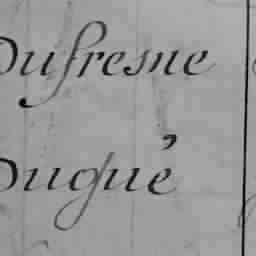 Dufresne
Dugué